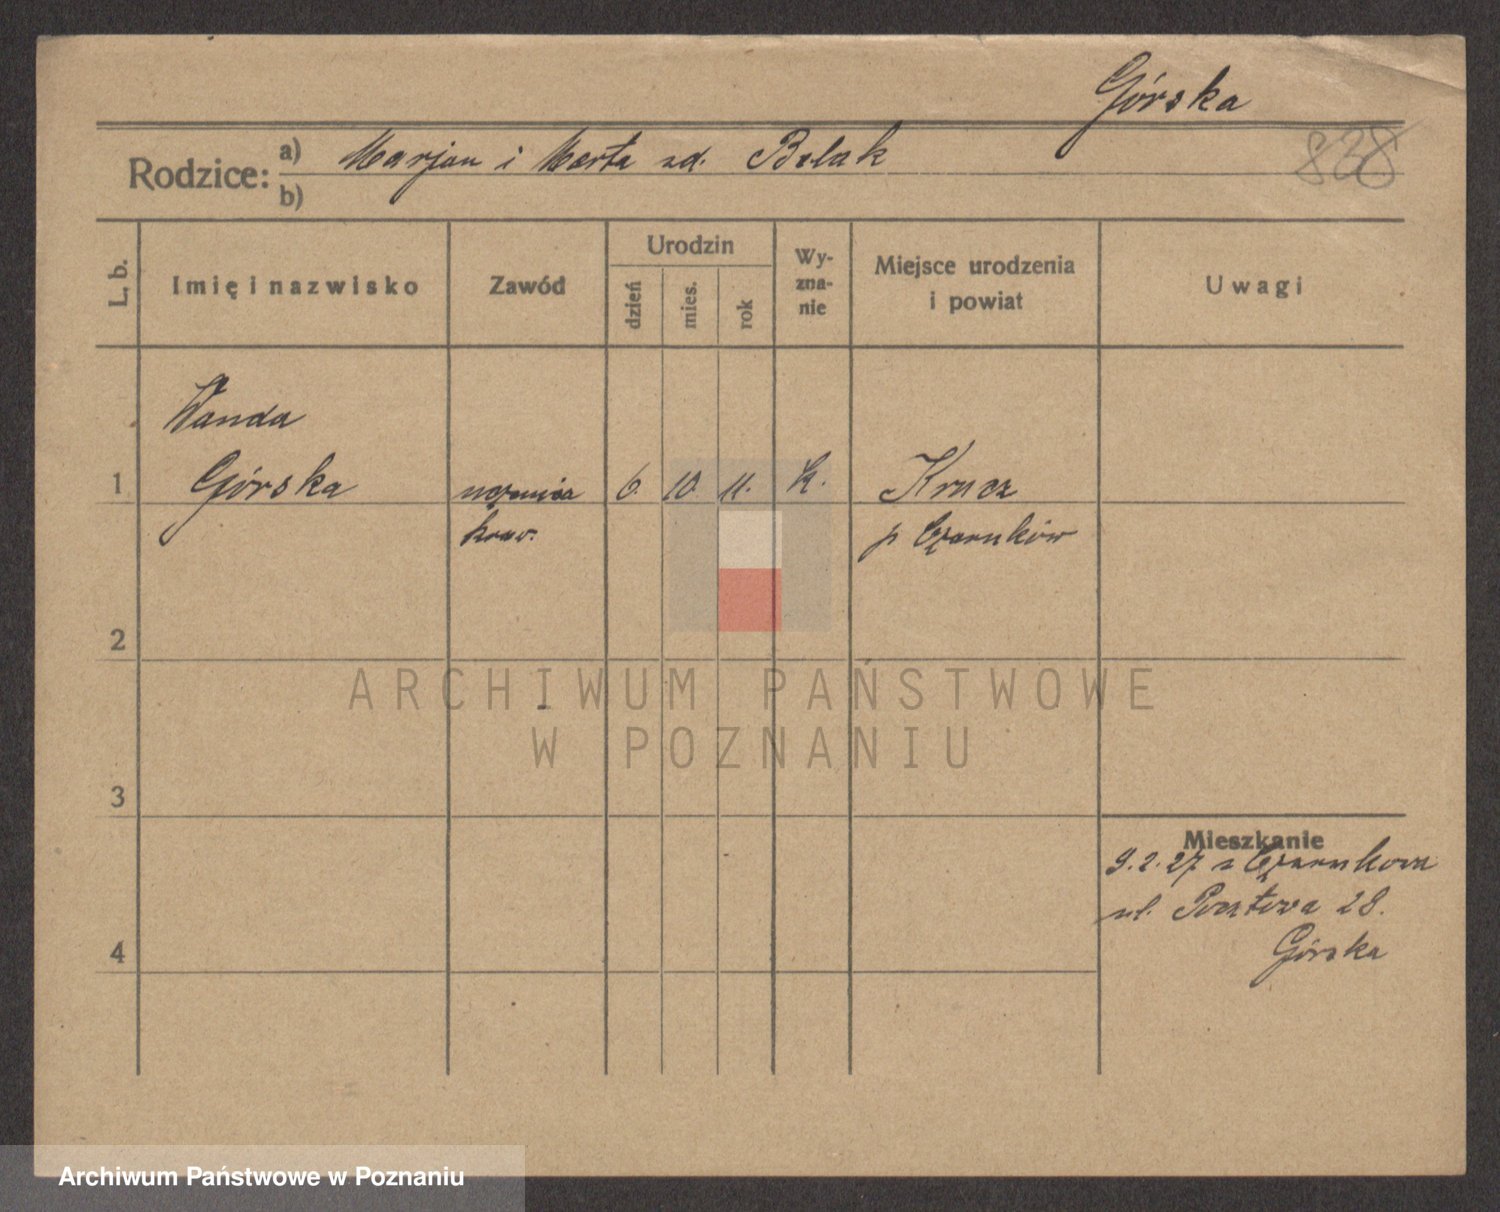 Górska
838
Rodzice: a) Marjan i Marta zd. Bolak
b)
L. b.
Imię i nazwisko
Zawód
Urodzin
dzień
mies.
rok
Wy-
zna-
nie
Miejsce urodzenia
i powiat
Uwagi
Wanda
1 Górska uczenica 6. 10. 11. k. Krucz
kraw. p Czarnków
2
3
4
Mieszkanie
9.2.27 z Czarnkowa
ul. Pocztowa 28.
Górska
ARCHIWUM PAŃSTWOWE
W POZNANIU
Archiwum Państwowe w Poznaniu